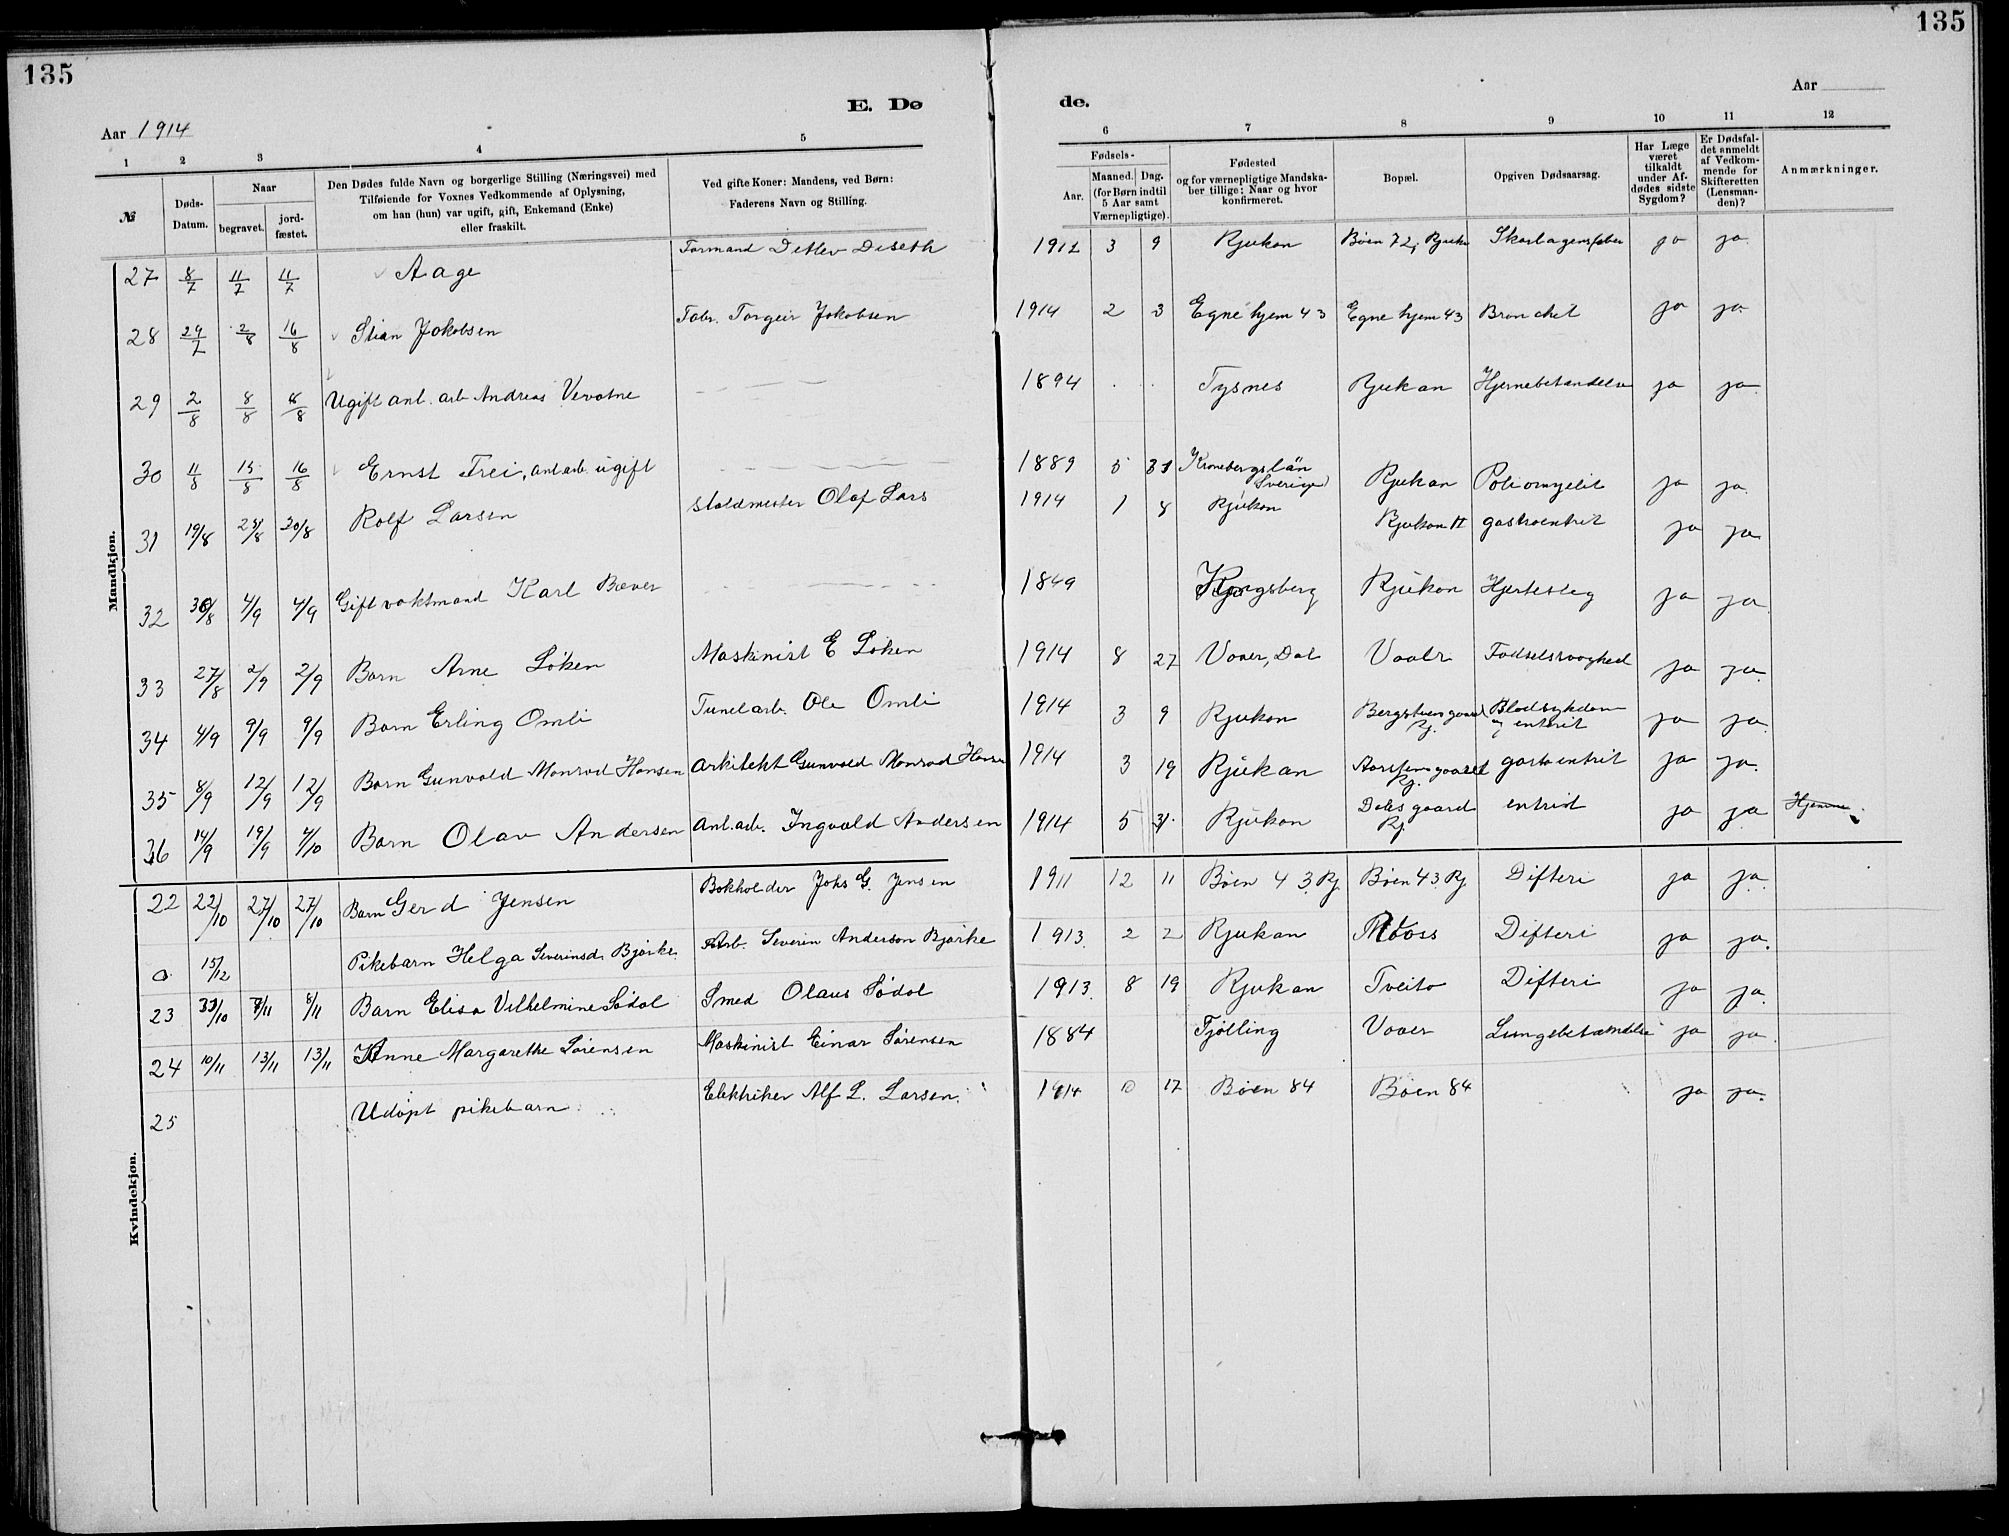 135
135
E. Dø
de.
Aar 1914
Aar
1 2 3 4 5 6 7 8 9 10 11 12
№
Døds-Datum.
Naar
begravet.
jord-fæstet.
Den Dødes fulde Navn og borgerlige Stilling (Næringsvei) med
Tilføiende for Voxnes Vedkommende af Oplysning,
om han (hun) var ugift, gift, Enkemand (Enke)
eller fraskilt.
Ved gifte Koner: Mandens, ved Børn:
Faderens Navn og Stilling.
Fødsels-
Aar.
Maaned. Dag.
(for Børn indtil
5 Aar samt
Værnepligtige).
Fødested
og for værnepligtige Mandska-
ber tillige: Naar og hvor
konfirmeret.
Bopæl.
Opgiven Dødsaarsag.
Har Læge
været
tilkaldt
under Af-
dødes sidste
Sygdom?
Er Dødsfal-
det anmeldt
af Vedkom-
mende for
Skifteretten
(Lensman-
den)?
Anmærkninger.
Mandkjøn.
27 8/7 11/7 11/7 Aage Formand Detlev Diseth 1912 3 9 Rjukan Bøen 72, Rjukan Skarlagensfeber ja ja.
28 29/7 2/8 16/8 Stian Jakobsen Fabr. Torgeir Jakobsen 1914 2 3 Egne hjem 43 Egne hjem 43 Bronchit ja ja.
29 2/8 8/8 8/8 Ugift anl. arb Andreas Vevatne 1894 Tysnes Rjukan Hjernebetændelse ja ja.
30 11/8 15/8 16/8 Ernst Frei, anl.arb. ugift 1889 5 31 Kronebergslän Sverige Rjukan Poliomyelit ja ja.
31 19/8 23/8 30/8 Rolf Larsen staldmester Olaf Lars 1914 1 8 Rjukan Rjukan H gastroentrit ja ja
32 30/8 4/9 4/9 Gift vaktmand Karl Bæver 1849 Kongsberg Rjukan Hjerteslag ja ja.
33 27/8 2/9 2/9 Barn Arne Løken Maskinist E Løken 1914 8 27 Vaaer, Dal Vaaer Fødselssvaghed ja ja.
34 4/9 9/9 9/9 Barn Erling Omli Tunelarb. Ole Omli 1914 3 9 Rjukan Bergstuen gaard Rj. Blodsykdom og entrit ja ja.
35 8/9 12/9 12/9 Barn Gunvald Monrad Hansen Arkitekt Gunvald Monrad Hansen 1914 3 19 Rjukan gaard Rj. gastoentrit ja ja.
36 14/9 19/9 4/10 Barn Olav Andersen Anl.arb. Ingvald Andersen 1914 5 31. Rjukan Dales gaard Rj. entrit ja ja Hjemme
Kvindekjøn.
22 22/10 27/10 27/10 Barn Gerd Jensen Bokholder Johs G. Jensen 1911 12 11 Bøen 43, Rj. Bøen 43, Rj. Difteri ja ja.
a 15/12 Pikebarn Helga Severinsd. Bjørke. Arb. Severin Anderson Bjørke 1913. 2 2 Rjukan Moss Difteri ja ja.
23 31/10 8/11 8/11 Barn Elisa Vilhelmine Sødal Smed Olaus Sødal 1913. 8 19 Rjukan Tveito Difteri ja ja.
24 10/11 13/11 13/11 Anne Margarethe Sørensen Maskinist Einar Sørensen 1884 Tjølling Vaaer Lungebetændelse ja ja.
25 Udøpt pikebarn Elektriker Alf L. Larsen. 1914 10 17 Bøen 84 Bøen 84 ja ja.